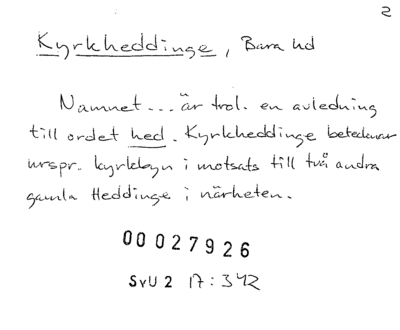 2
Kyrkheddinge, Bara hd
Namnet... är trol. en avledning
till ordet hed. Kyrkheddinge betecknar
urspr. kyrkbyn i motsats till två andra
gamla Heddinge i närheten.
00027926
SvU 2 17:342